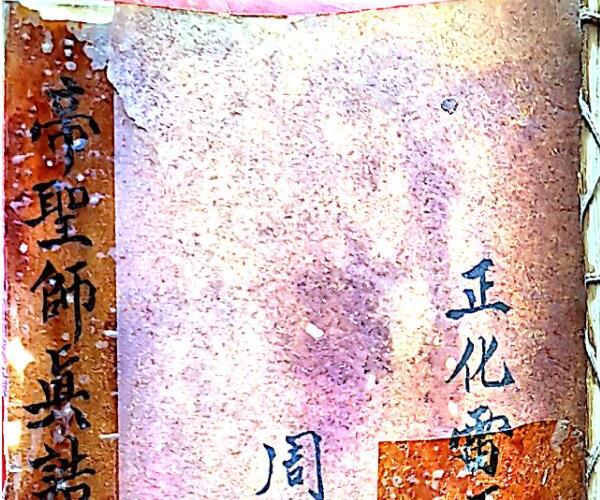 正化雷
周
帝聖師眞誥